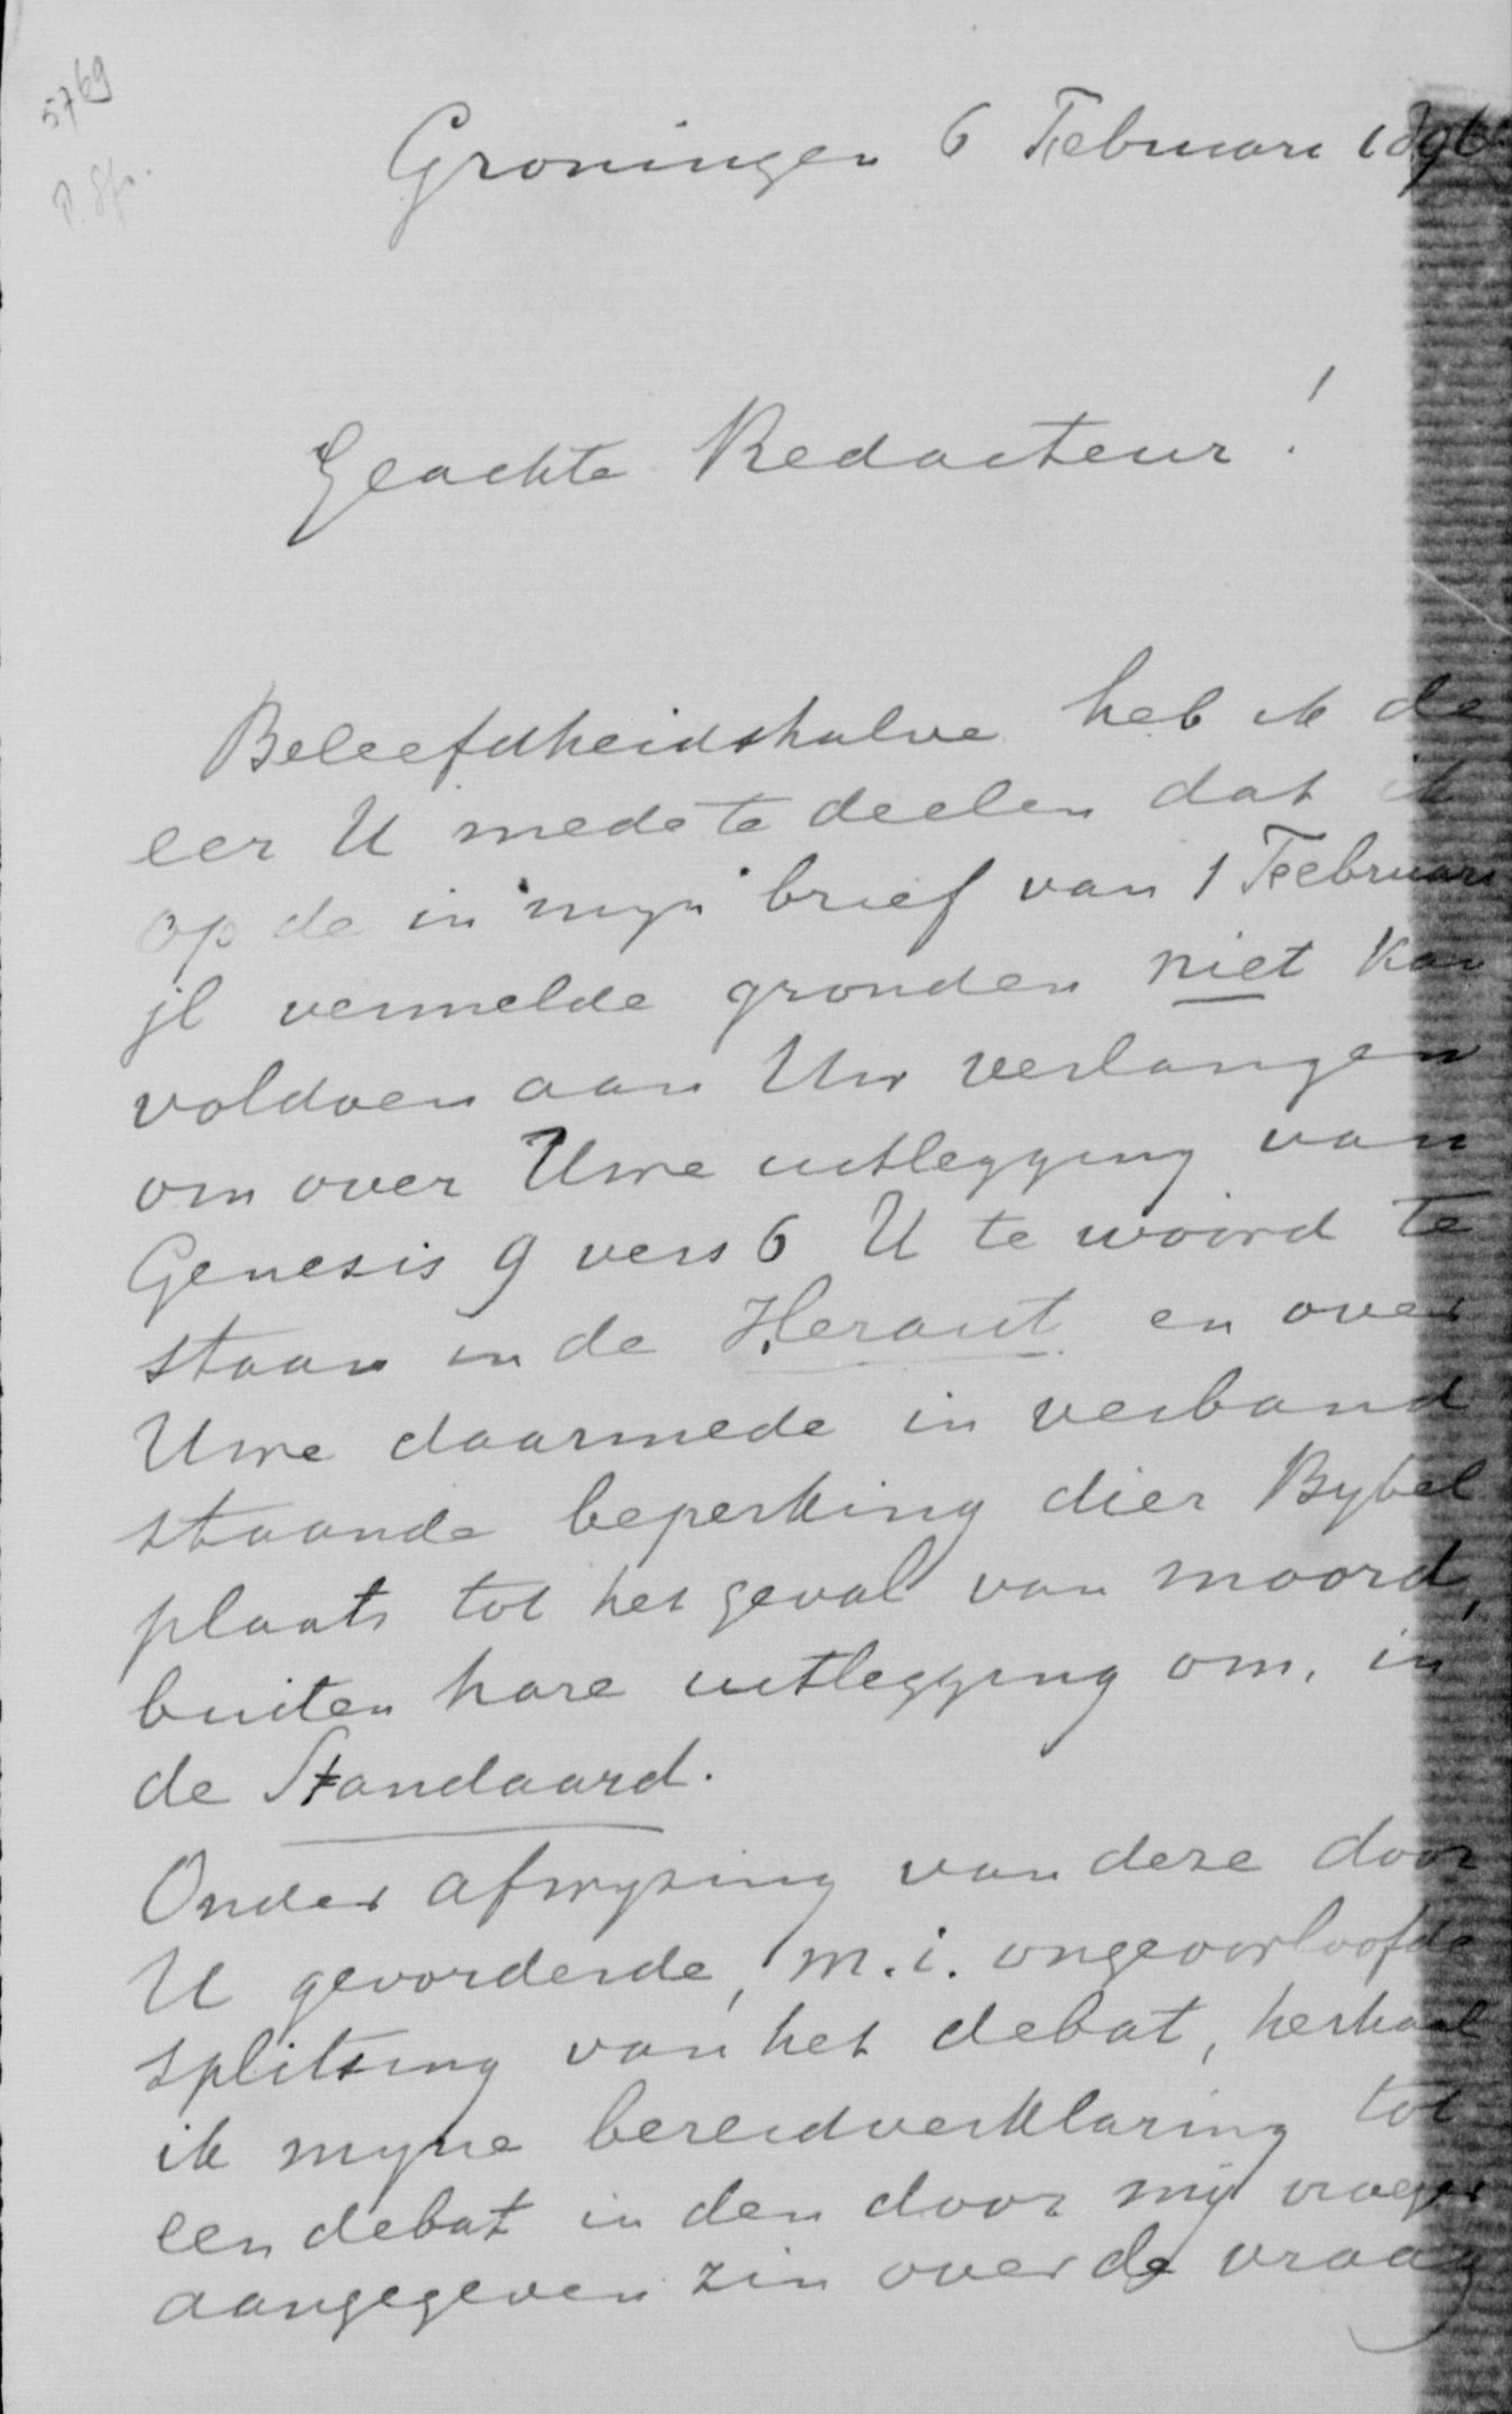 5769
Groningen 6 Februari 1896
Geachte Redacteur!
Beleefdheidshalve heb ik de
eer U mede te deelen dat ik
op de in mijn brief van 1 Februari
jl vermelde gronden niet kan
voldoen aan Uw verlangen
om over Uwe uitlegging van
Genesis 9 vers 6 U te woord te
staan in de Heraut en over
Uwe daarmede in verband
staande beperking dier Bybel
plaats tot het geval van moord,
buiten hare uitlegging om, in
de Standaard.
Onder afwyzing van deze door
U gevorderde, m.i. ongeoorloofde
splitsing van het debat, herhaal
ik myne bereidverklaring tot
een debat in den door mij vroeger
aangegeven zin over de vraag